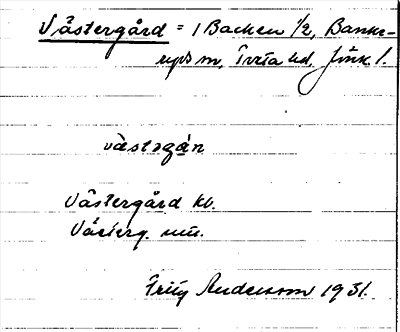 Västergård = 1 Backen 1/2, Banke-
ryds sn, Tveta hd. Jönk l.
västəgán
Västergård kb.
Västerg. mtl.
Fritz Anderson 1931.